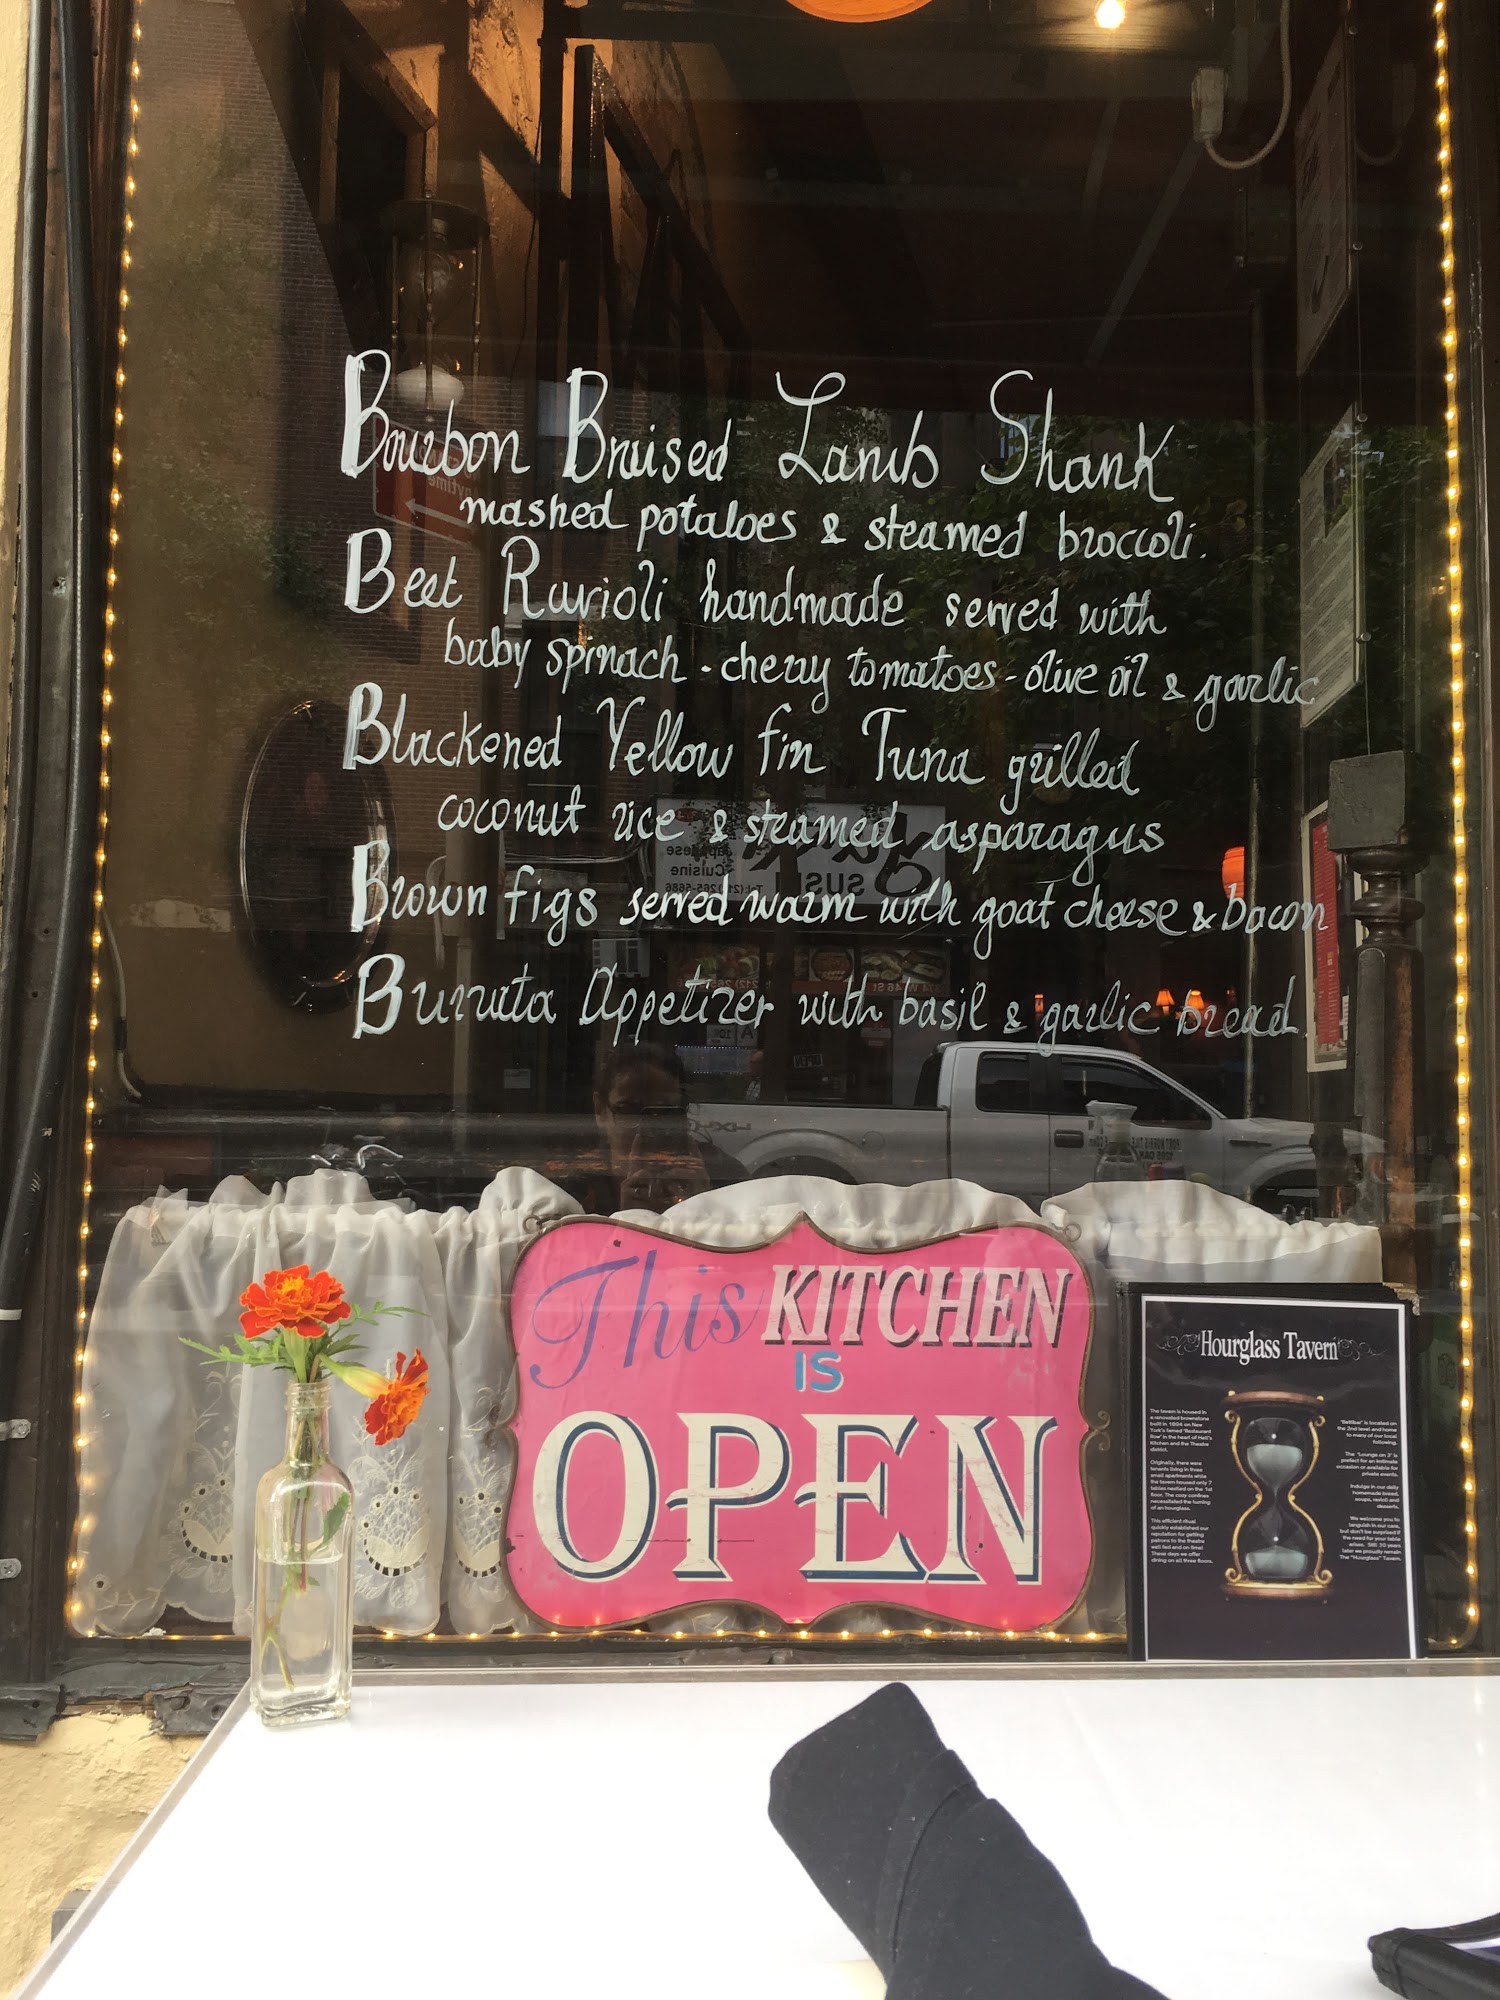 Bourbon Bruised Lamb Shank
mashed potatoes & steamed broccoli.
Beet Ravioli handmade served with
baby spinach - cherry tomatoes - olive oil & garlic
Blackened Yellow fin Tuna grilled
coconut rice & steamed asparagus
Brown figs served warm with goat cheese & bacon
Burrata Appetizer with basil & garlic bread.
Japanese
Cuisine
SUSHI
Tel:(212)265-5686
OPEN
This KITCHEN
IS
OPEN
Hourglass Tavern
The tavern is housed in
a renovated brownstone
built in 1894 on New
York's famed "Restaurant
Row" in the heart of Hell's
Kitchen and the Theatre
district.
Originally, there were
tenants living in three
small apartments while
the tavern housed only 7
tables nestled on the 1st
floor. The cozy confines
necessitated the turning
of an hourglass.
This efficient ritual
quickly established our
reputation for getting
patrons to the theatre
well fed and on time!
These days we offer
dining on all three floors.
is located on
the 2nd level and home
to many of our local
following.
The "Lounge on 3" is
prefect for an intimate
occasion or available for
private events.
Indulge in our daily
homemade bread,
soups, ravioli and
desserts.
We welcome you to
languish in our care,
but don't be surprised if
the need for your table
arises. Still 30 years
later we proudly remain
The "Hourglass" Tavern.